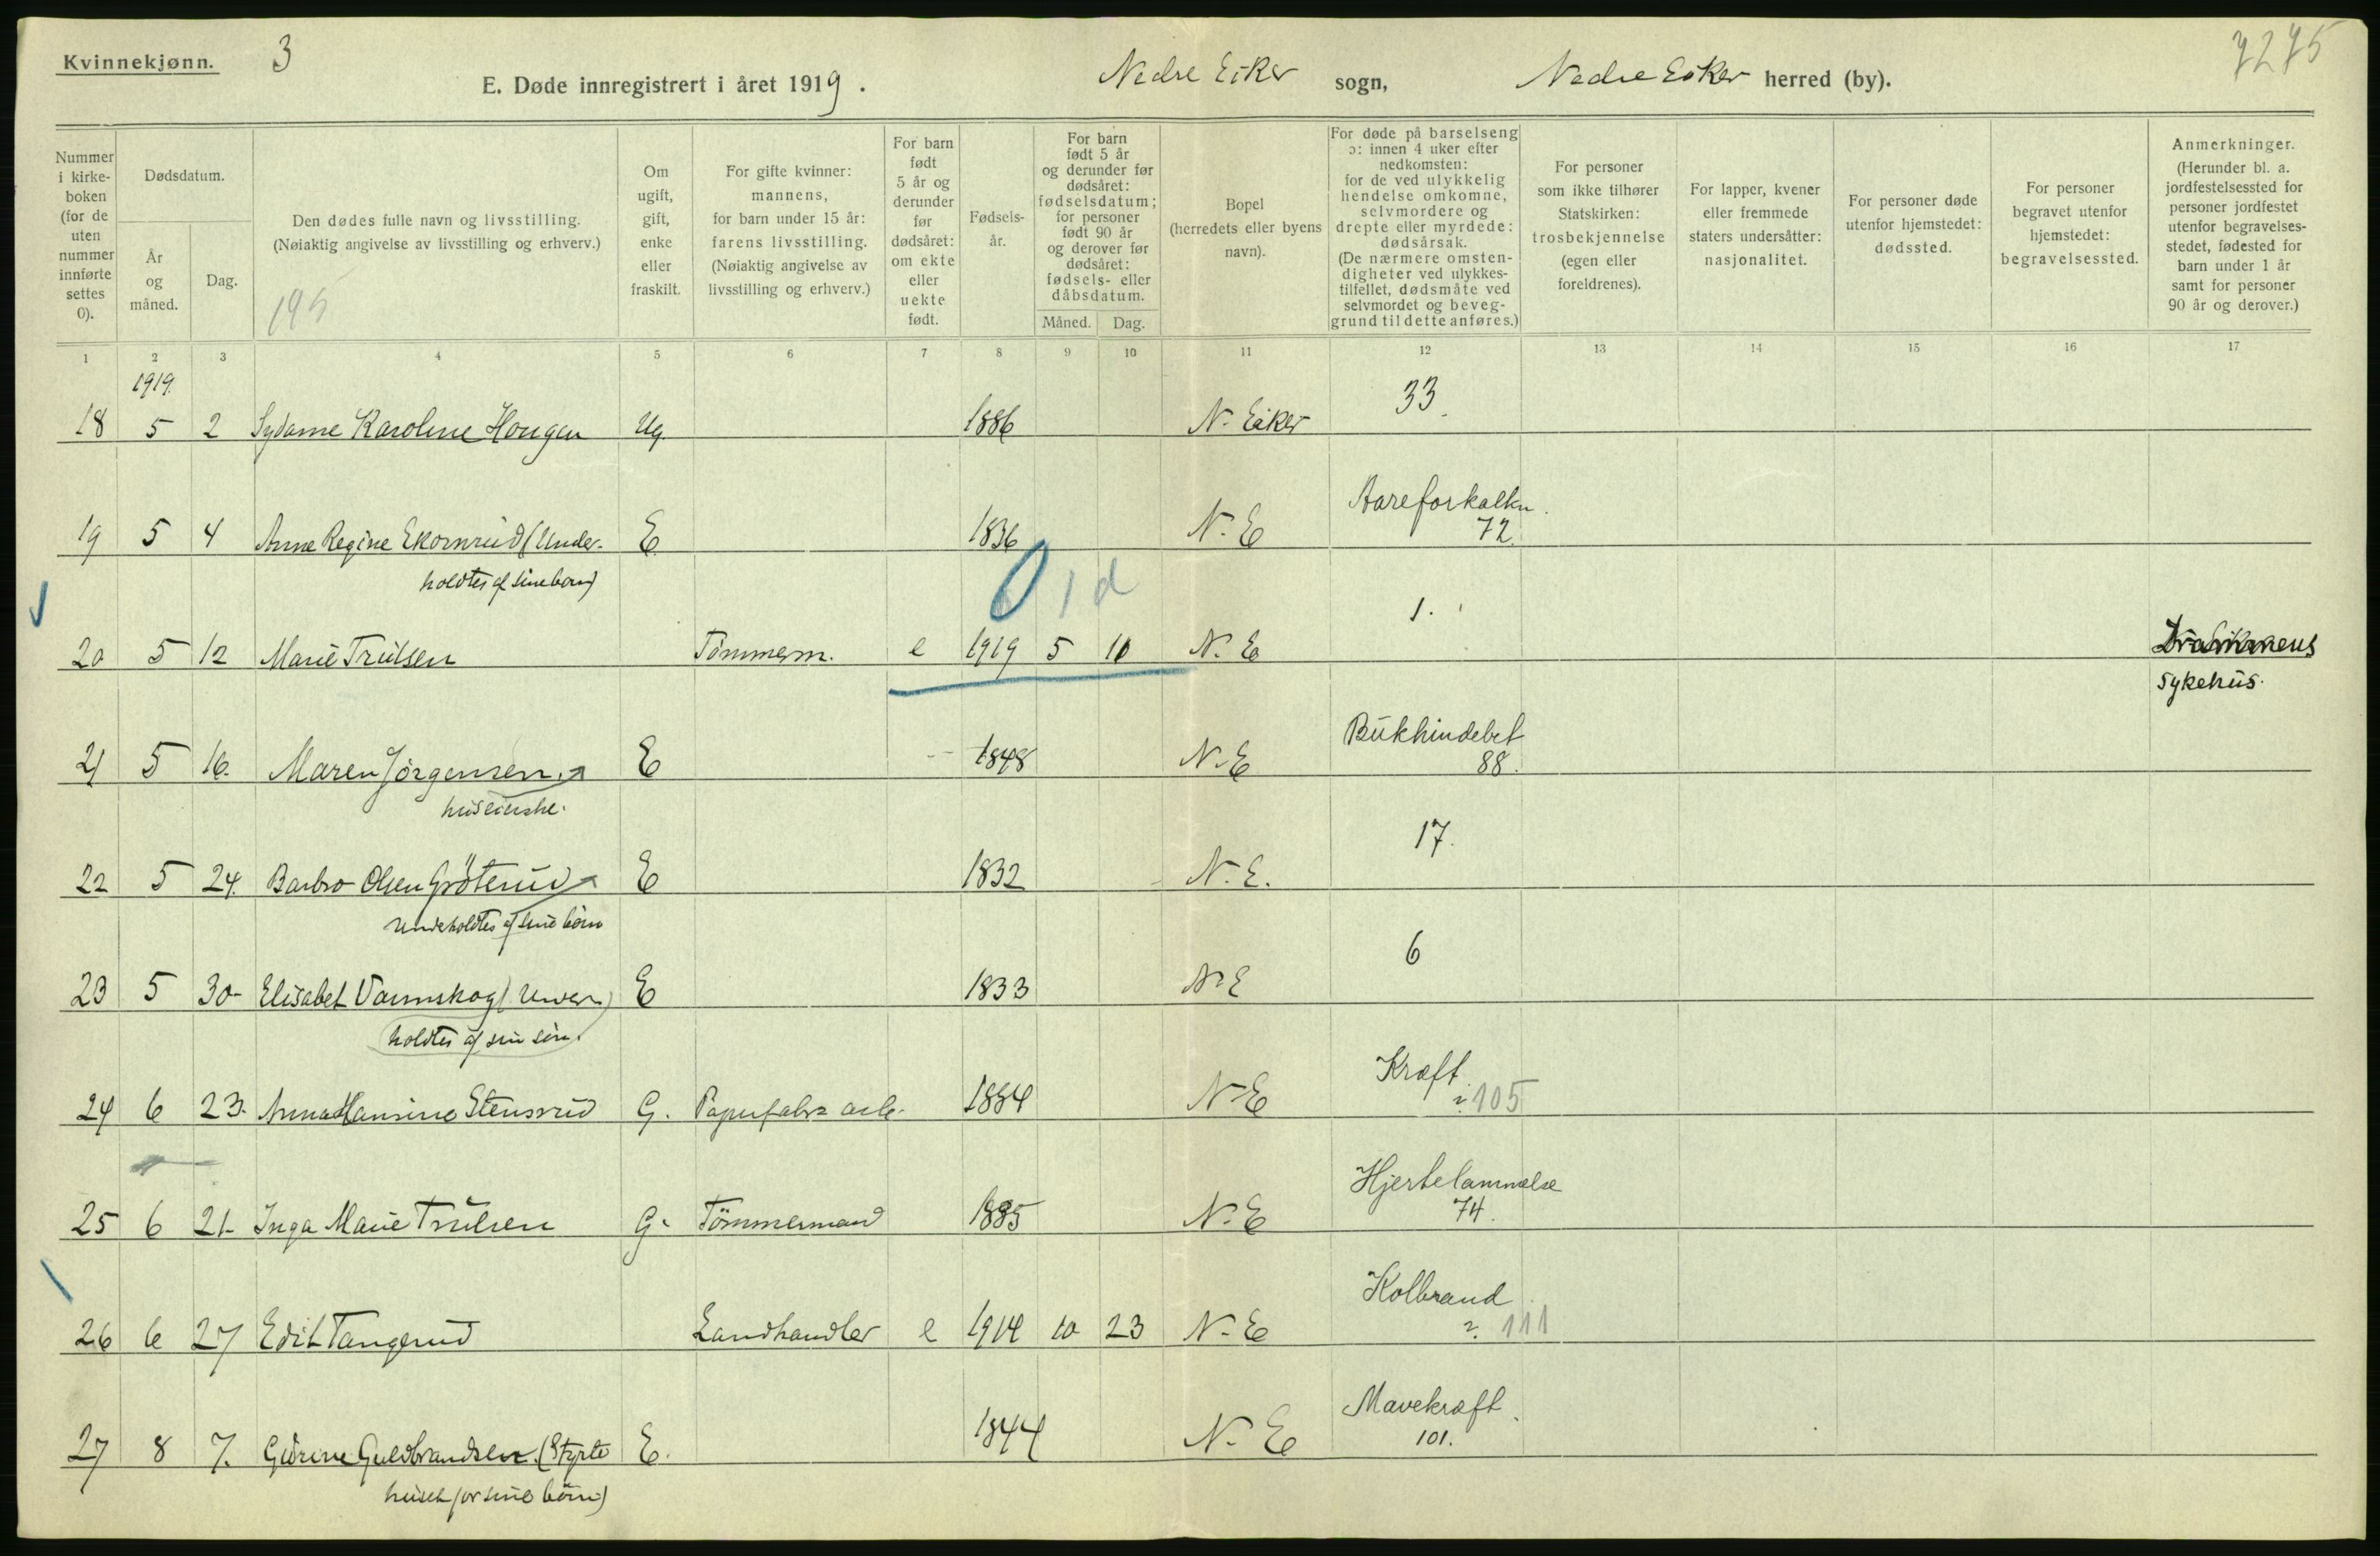 Kvinnekjønn.
3
E. Døde innregistrert i året 1919.
Nedre Eiker sogn,
Nedre Eiker herred (by).
7275
Nummer i kirke-boken (for de uten nummer innførte settes 0).
Dødsdatum.
År og måned.
Dag.
Den dødes fulle navn og livsstilling.
(Nøiaktig angivelse av livsstilling og erhverv.)
195
Om ugift, gift, enke eller fraskilt.
For gifte kvinner: mannens, for barn under 15 år: farens livsstilling. (Nøiaktig angivelse av livsstilling og erhverv.)
For barn født 5 år og derunder før dødsåret: om ekte eller uekte født.
Fødsels-år.
For barn født 5 år og derunder før dødsåret: fødselsdatum; for personer født 90 år og derover før dødsåret: fødsels- eller dåbsdatum.
Måned. Dag.
Bopel (herredets eller byens navn).
For døde på barselseng ɔ: innen 4 uker efter nedkomsten: for de ved ulykkelig hendelse omkomne, selvmordere og drepte eller myrdede: dødsårsak. (De nærmere omsten-digheter ved ulykkes-tilfellet, dødsmåte ved selvmordet og beveg-grund til dette anføres.)
For personer som ikke tilhører Statskirken: trosbekjennelse (egen eller foreldrenes).
For lapper, kvener eller fremmede staters undersåtter: nasjonalitet.
For personer døde utenfor hjemstedet: dødssted.
For personer begravet utenfor hjemstedet: begravelsessted.
Anmerkninger. (Herunder bl. a. jordfestelsessted for personer jordfestet utenfor begravelses-stedet, fødested for barn under 1 år samt for personer 90 år og derover.)
1 2 3 4 5 6 7 8 9 10 11 12 13 14 15 16 17
1919.
33.
18 5 2 Karoline Hougen Ug. 1886 N. Eiker
Aareforkalkn.
19 5 4 Anne Regine Ekornrud (Under- E. 1836 N. E 72.
holdtes af sine børn)
0 1 d
1.
20 5 12 Marie Trulsen Tømmerm. e 1919 5 10 N. E Drammens
sykehus.
Bukhindebet
21 5 16. Maren Jørgensen E 1848 N. E 88.
huseierske.
17.
22 5 24. Barbro Olsen Grøterud E 1832 N. E.
Underholdtes af sine børn
6
23 5 30 Elisabet Varmskog (Under- E 1833 N. E
holdtes af sin søn.
Kræft.
24 6 23. Anna Hansine Stensrud G. Papirfabr. arb. 1884 N. E 2. 105
Hjertelammelse
25 6 21 Inga Marie Trulsen G. Tømmermand 1885 N. E 74.
Kolbrand
26 6 27 Edit Tangerud Landhandler e 1914 10 23 N. E 2. 111
Mavekræft.
27 8 7. Gurine Guldbrandsen. (Styrte E. 1844 N. E 101.
huset for sine børn)